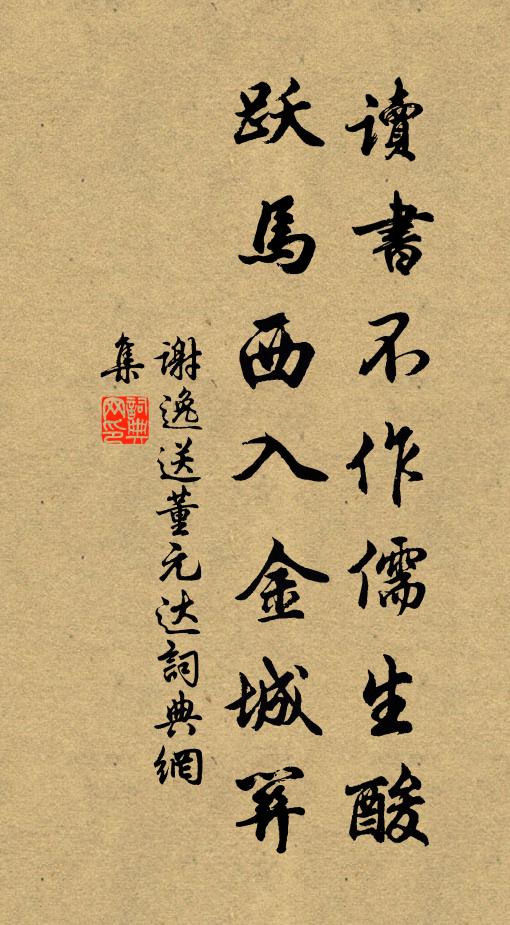 讀書不作儒生酸
躍馬西入金城關
謝逸送董元达詞典網
集
詞典网印